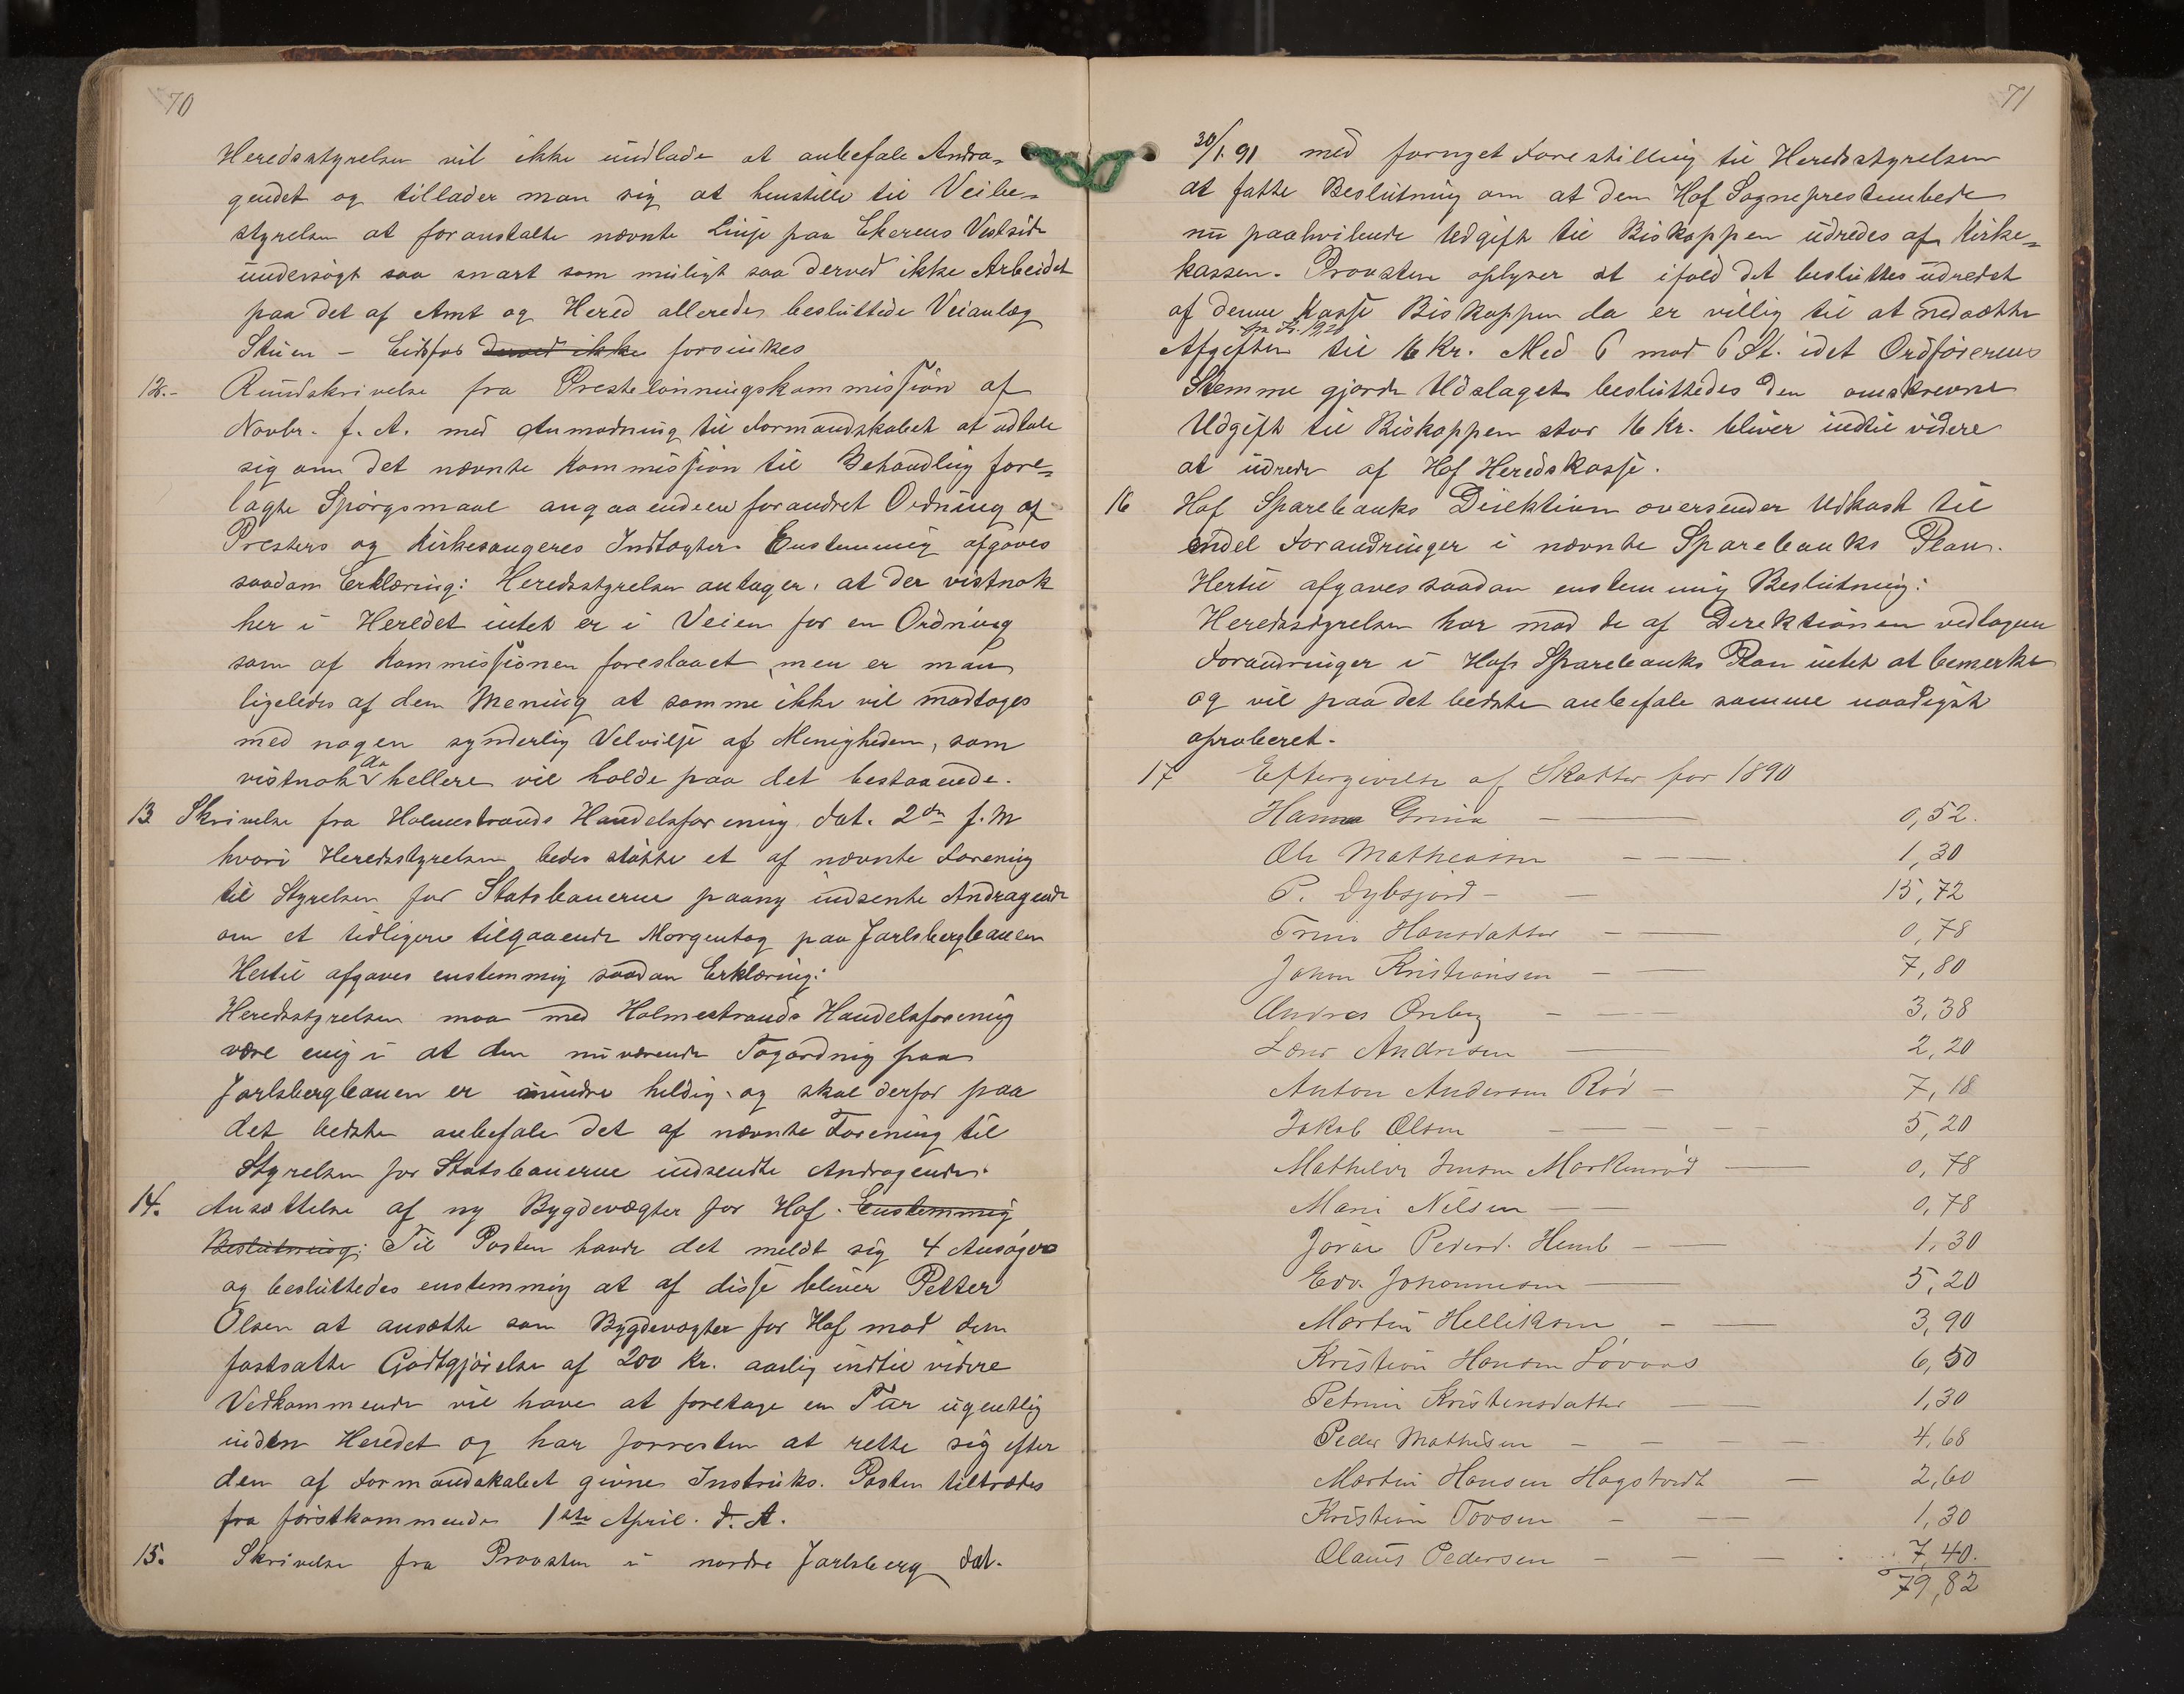 70
Heredsstyrelsen vil ikke undlade at anbefale Andra-
gendet og tillader man sig at henstille til Veibe-
styrelsen at foranstalte nævnte Linje paa Ekerens Vestside
undersøgt saa snart som muligt saa derved ikke Arbeidet
paa det af Amt og Hered allerede besluttede Veianlæg
Stuen – Eidsfos derved ikke forsinkes
12.- Rundskrivelse fra Prestelønningskommissiøn af
Novbr. f. A. med Anmodning til Formandskabet at udtale
sig om det nævnte Kommission til Behandling fore-
lagte Spørgsmaal angaaende en forandret Ordning af
Presters og Kirkesangeres Indtægter. Enstemmig afgaves
saadan Erklæring: Heredsstyrelsen antager, at der vistnok
her i Heredet intet er i Veien for en Ordning
som af Kommissionen foreslaaet, men er man
ligeledes af den Mening at samme ikke vil modtages
med nogen synderlig Velvilje af Menigheden, som
vistnok da hellere vil holde paa det bestaaende.
13 Skrivelse fra Holmestrands Handelsforening dat. 2den f. M
hvori Heredsstyrelsen bedes støtte et af nævnte Forening
til Styrelsen for Statsbanerne paany indsente Andragende
om et tidligere tilgaaende Morgentog paa Jarlsbergbanen
Hertil afgaves enstemmig saadan Erklæring:
Heredsstyrelsen maa med Holmestrands Handelsforening
være enig i at den nuværende Togordning paa
Jarlsbergbanen er mindre heldig og skal derfor paa
det bedste anbefale det af nævnte Forening til
Styrelsen for Statsbanerne indsendte Andragende.
14. Ansættelse af ny Bygdevægter for Hof. Enstemmig
Beslutning: Til Posten havde det meldt sig 4 Ansøgere
og besluttedes enstemmig at af disse bliver Petter
Olsen at ansætte som Bygdevægter for Hof mod den
fastsatte Godtgjørelse af 200 Kr. aarlig indtil videre
Vedkommende vil have at foretage en Tur ugentlig
inden Heredet og har forresten at rette sig efter
den af Formandskabet givne Instruks. Posten tiltrædes
fra førstkommende 1ste April. d. A.
15. Skrivelse fra Provsten i nordre Jarlsberg dat.
71
30/1. 91 med fornyet Forestilling til Heredsstyrelsen
at fatte Beslutning om at den Hof Sogneprestembede
nu paahvilende Udgift til Biskoppen udredes af Kirke-
kassen. Provsten oplyser at ifald det besluttes udredet
af denne Kasse Biskoppen da er villig til at nedsætte
Afgiften til 16 Kr. Med 6 mod 6 St. idet Ordførerens
Stemme gjorde Udslaget besluttedes den omskrevne
Udgift til Biskoppen stor 16 Kr. bliver indtil videre
at udrede af Hof Heredskasse.
16 Hof Sparebanks Direktion oversender Udkast til
endel Forandringer i nævnte Sparebanks Plan.
Hertil afgaves saadan enstemmig Beslutning:
Heredsstyrelsen har mod de af Direktionen vedtagne
Forandringer i Hofs Sparebanks Plan intet at bemerke
og vil paa det bedste anbefale samme naadigst
aproberet.
17 Eftergivelse af Skatter for 1890
Hanna Grina — 0,52.
Ole Matheasen — 1,30
P. Dybsjord — 15,72
Trine Hansdatter — 0,78
Johan Kristiansen — 7,80
Andres Ørsberg — 3,38
Lars Andresen — 2,20
Anton Andersen Rød — 7,18
Jakob Olsen — 5,20
Mathilde Jensen Markenrød — 0,78
Marie Nilsen — 0,78
Joran Pedersd. Hemb — 1,30
Edv. Johannesen — 5,20
Martin Helliksen — 3,90
Kristian Hansen Løvaas 6,50
Petrine Kristensdatter — 1,30
Peder Mathisen — 4,68
Martin Hansen Hagstvedt — 2,60
Kristian Tovsen — 1,30
Olaus Pedersen — 7,40.
79,82